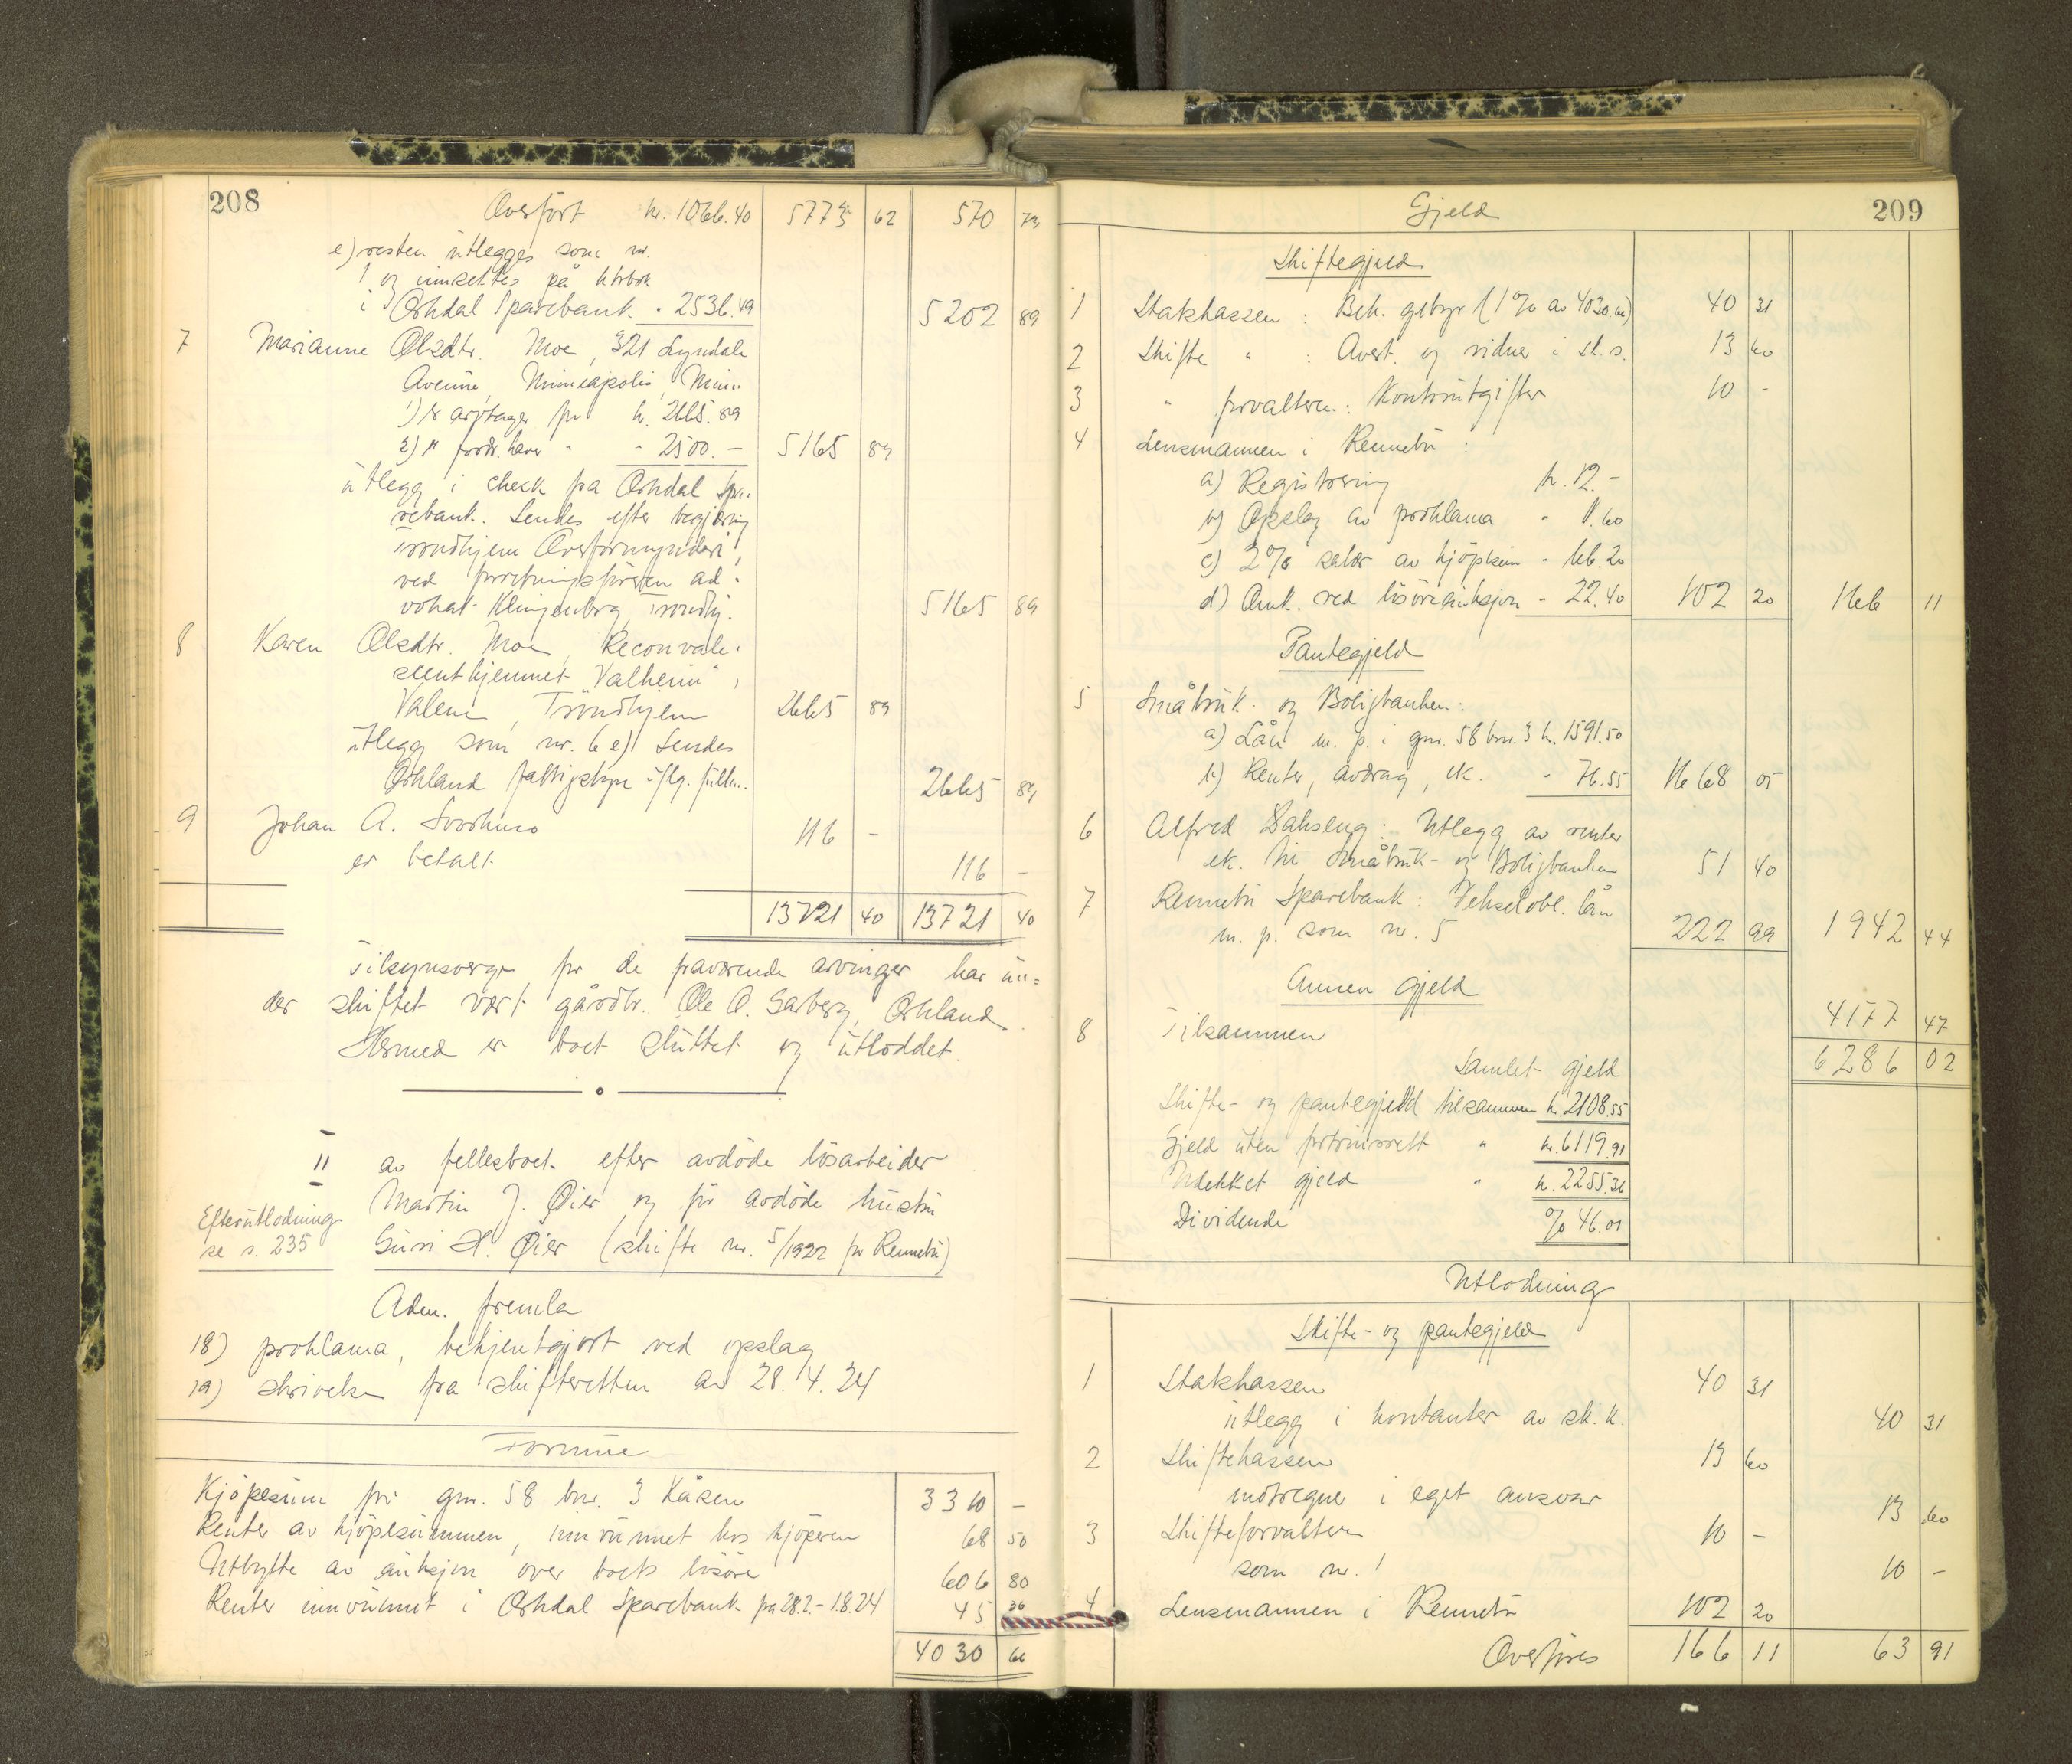 208
Overført kr. 1066.40 5773 62 570 73
e) resten utlegges som nr.
1 og innsettes på ktrbok
i Orkdal Sparebank " 2536.49 5202 89
7 Marianne Olsdtr. Moe, 321 Lyndale
Avenue, Minneapolis, Minn.
1) er arvtager for kr. 2665.89
2) " fordr.haver " " 2500.— 5165 89
utlegg i check fra Orkdal Spa-
rebank. Sendes efter begjæring
Trondhjem Overformynderi,
ved forretningsføreren ad-
vokat Klingenberg, Trondhj. 5165 89
8 Karen Olsdtr. Moe, Reconvale-
scenthjemmet "Valheim",
Valene, Trondhjem 2665 89
utlegg som nr. 6 e) Sendes
Orkland fattigstyre iflg. fullm. 2665 89
9 Johan A. Svorkmo 116 -
er betalt 116 -
13721 40 13721 40
Tilsynsverge for de fraværende arvinger har un-
der skiftet vært gårdbr. Ole O. Garberg, Orkland.
Hermed er boet sluttet og utloddet.
II av fellesboet efter avdøde løsarbeider
Martin J. Øier og før avdøde hustru
Guri H. Øier (skifte nr. 5/1922 for Rennebu)
Efterutlodning
se s. 235
Adm. fremla
18) proklama, bekjentgjort ved opslag
19) skrivelse fra skifteretten av 28.4.24
Formue
Kjøpesum for gnr. 58 bnr. 3 Kåsen 3310 -
Renter av kjøpesummen, innvunnet hos kjøperen 68 50
Utbytte av auksjon over boets løsøre 606 80
Renter innvunnet i Orkdal Sparebank fra 28.2.- 1.8.24 45 36
4030 66
Gjeld 209
Skiftegjeld
1 Statskassen: Beh. gebyr (1% av 4030.66) 40 31
2 Skifte " : Avert. og sidner i st. s. 13 60
3 " forvalteren: Kontorutgifter 10 -
4 Lensmannen i Rennebu:
a) Registrering kr. 12.-
b) Opslag av proklama " 1.60
c) 2% salær av kjøpesum - 66.20
d) Omk. ved løsøreauksjon - 22.40 102 20 166 11
Pantegjeld
5 Småbruk- og Boligbanken:
a) Lån m. p. i gnr. 58 bnr. 3 kr. 1591.50
b) Renter, avdrag, etc. - 76.55 1668 05
6 Alfred Sakseng: Utlegg av renter
etc. til Småbruk- og Boligbanken 51 40
7 Rennebu Sparebank: Vekselobl. lån
m. p. som nr. 5 222 99 1942 44
Annen gjeld
8 Tilsammen 4177 47
Samlet gjeld 6286 02
Skifte- og pantegjeld tilsammen kr. 2108.55
Gjeld uten fortrinsrett " kr. 6119.91
Udekket gjeld " kr. 2255.36
Dividende % 46.01
Utlodning
Skifte- og pantegjeld
1 Statskassen 40 31
utlegg i kontanter av sk. k. 40 31
2 Skiftekassen 13 60
motregner i eget ansvar 13 60
3 Skifteforvalteren 10 -
som nr. 1 10 -
4 Lensmannen i Rennebu 102 20
Overføres 166 11 63 91